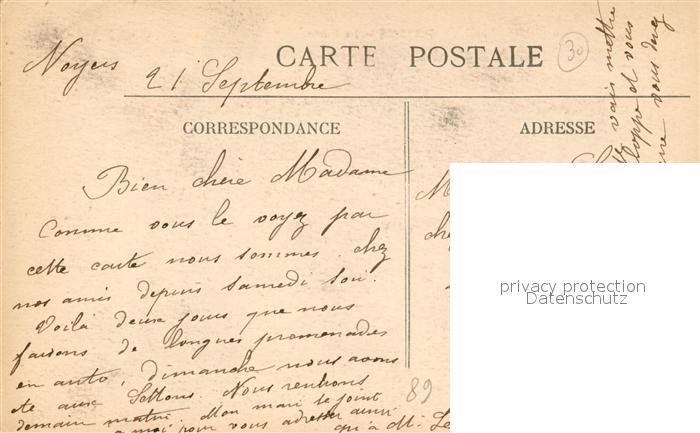 CARTE POSTALE
30
Noyers 21 Septembre
CORRESPONDANCE
ADRESSE
Bien chère Madame
Comme vous le voyez par
cette carte nous sommes chez
nos amis depuis samedi soir.
Voilà deux jours que nous
faisons de longues promenades
en auto, dimanche nous avons
été aux Settons. Nous rentrons
demain matin. Mon mari se joint
à moi pour vous adresser ainsi
qu'à Mr
vais mettre
et vous
vous
privacy protection
Datenschutz
89